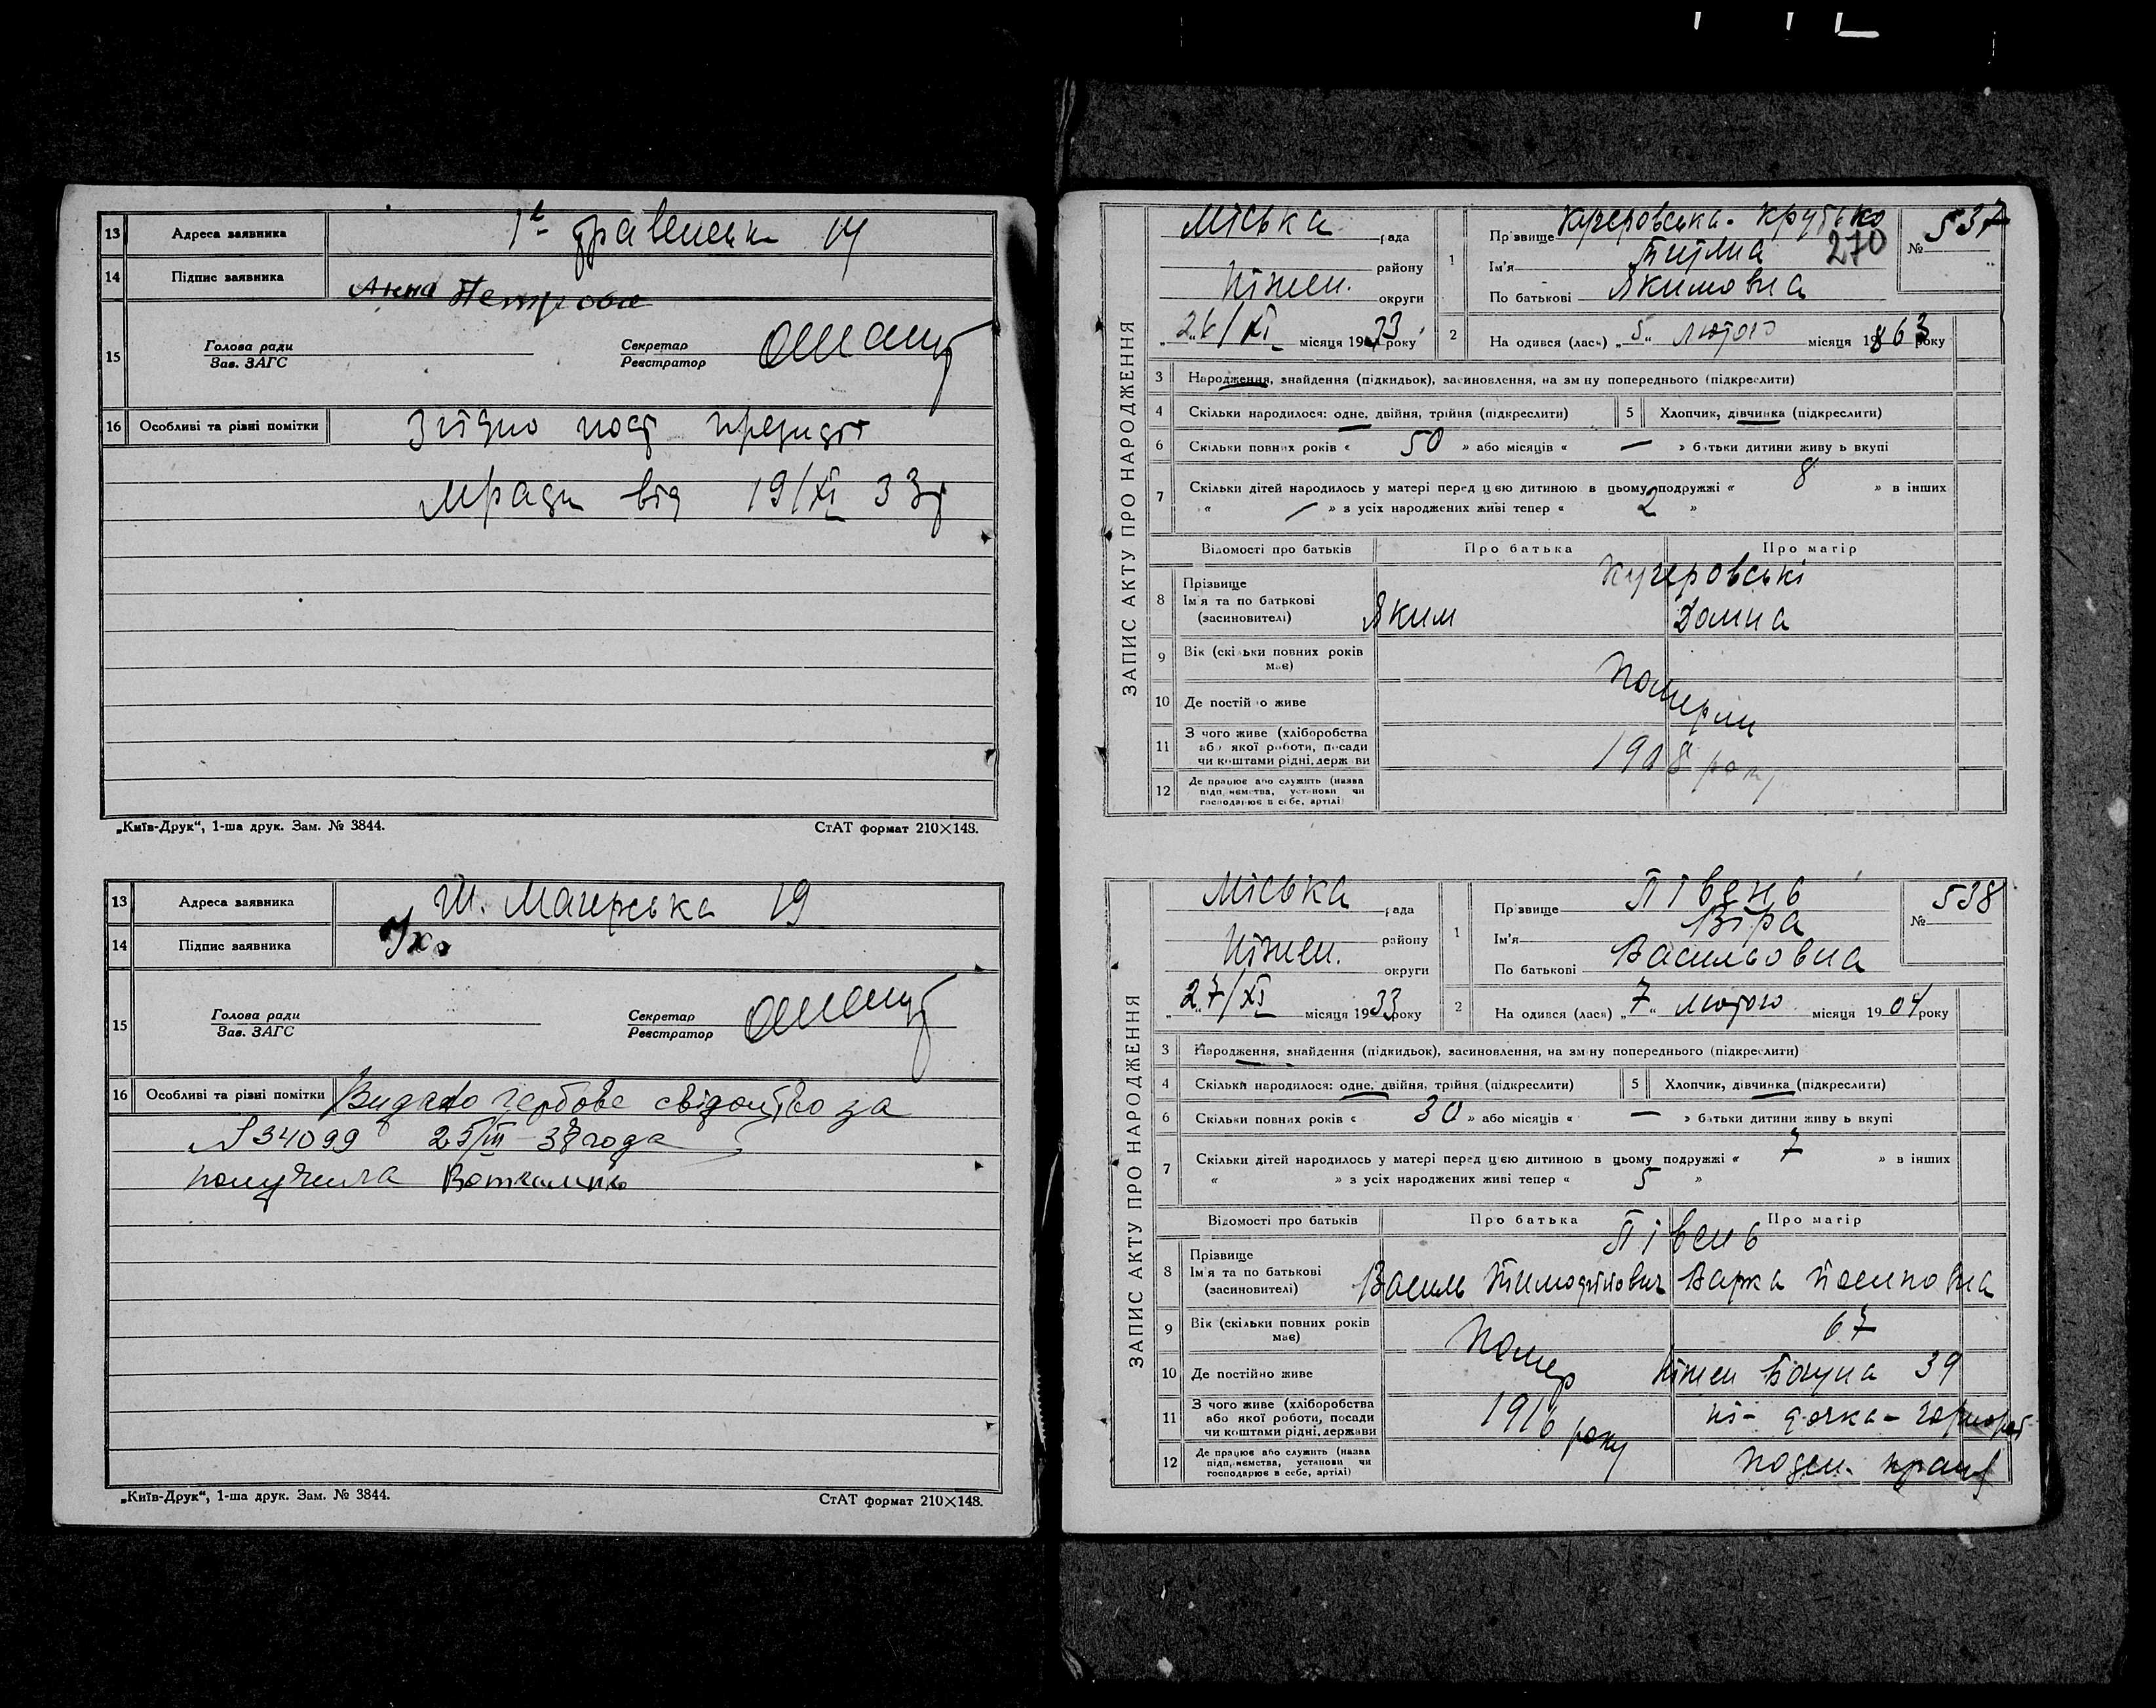 13 Адреса заявника 1ª травенська 14
14 Підпис заявника Анна Петрова
15 Голова ради Секретар
Зав. ЗАГС Реєстратор
16 Особливі та різні помітки Згідно пост през
мради від 19/XI 33р
„Київ-Друк“, 1-ша друк. Зам. № 3844. СтАТ формат 210×148.
13 Адреса заявника Ш. Магерська 19
14 Підпис заявника
15 Голова ради Секретар
Зав. ЗАГС Реєстратор
16 Особливі та різні помітки Видано гербове свідоцтво за
№ 34099 25/III-38 года
получила
„Київ-Друк“, 1-ша друк. Зам. № 3844. СтАТ формат 210×148.
ЗАПИС АКТУ ПРО НАРОДЖЕННЯ
Міська рада
району
Ніжен. округи
„26/XI місяця 1933 року
1 Прізвище Кучеровська-Крутько
Ім'я
270
По батькові Якимовна
№ 537
2 Народився (лась) „5“ лютого місяця 1863 року
3 Народження, знайдення (підкидьок), засиновлення, на зміну попереднього (підкреслити)
4 Скільки народилося: одне, двійня, трійня (підкреслити) 5 Хлопчик, дівчинка (підкреслити)
6 Скільки повних років « 50 » або місяців « — » батьки дитини живуть вкупі
7 Скільки дітей народилось у матері перед цією дитиною в цьому подружжі « 8 » в інших
« — » з усіх народжених живі тепер « 2 »
Відомості про батьків Про батька Про матір
8 Прізвище Кучеровські
Ім'я та по батькові Яким Домна
(засиновителі)
9 Вік (скільки повних років має)
10 Де постійно живе Померли
11 З чого живе (хліборобства 1908 року
або якої роботи, посади
чи коштами рідні, держави
12 Де працює або служить (назва
підприємства, установи чи
господарює в себе, артілі)
ЗАПИС АКТУ ПРО НАРОДЖЕННЯ
Міська рада
району
Ніжен. округи
„27/XI місяця 1933 року
1 Прізвище Півень
Ім'я Віра
По батькові Васильовна
№ 538
2 Народився (лась) „7“ лютого місяця 1904 року
3 Народження, знайдення (підкидьок), засиновлення, на зміну попереднього (підкреслити)
4 Скільки народилося: одне, двійня, трійня (підкреслити) 5 Хлопчик, дівчинка (підкреслити)
6 Скільки повних років « 30 » або місяців « — » батьки дитини живуть вкупі
7 Скільки дітей народилось у матері перед цією дитиною в цьому подружжі « 7 » в інших
« » з усіх народжених живі тепер « 5 »
Відомості про батьків Про батька Про матір
8 Прізвище Півень
Ім'я та по батькові Василь Тимофійович Варка
(засиновителі)
9 Вік (скільки повних років має) 67
10 Де постійно живе Помер Ніжен Богуна 39
11 З чого живе (хліборобства 1916 року дочка - чорнороб
або якої роботи, посади
чи коштами рідні, держави
12 Де працює або служить (назва поден. прац
підприємства, установи чи
господарює в себе, артілі)